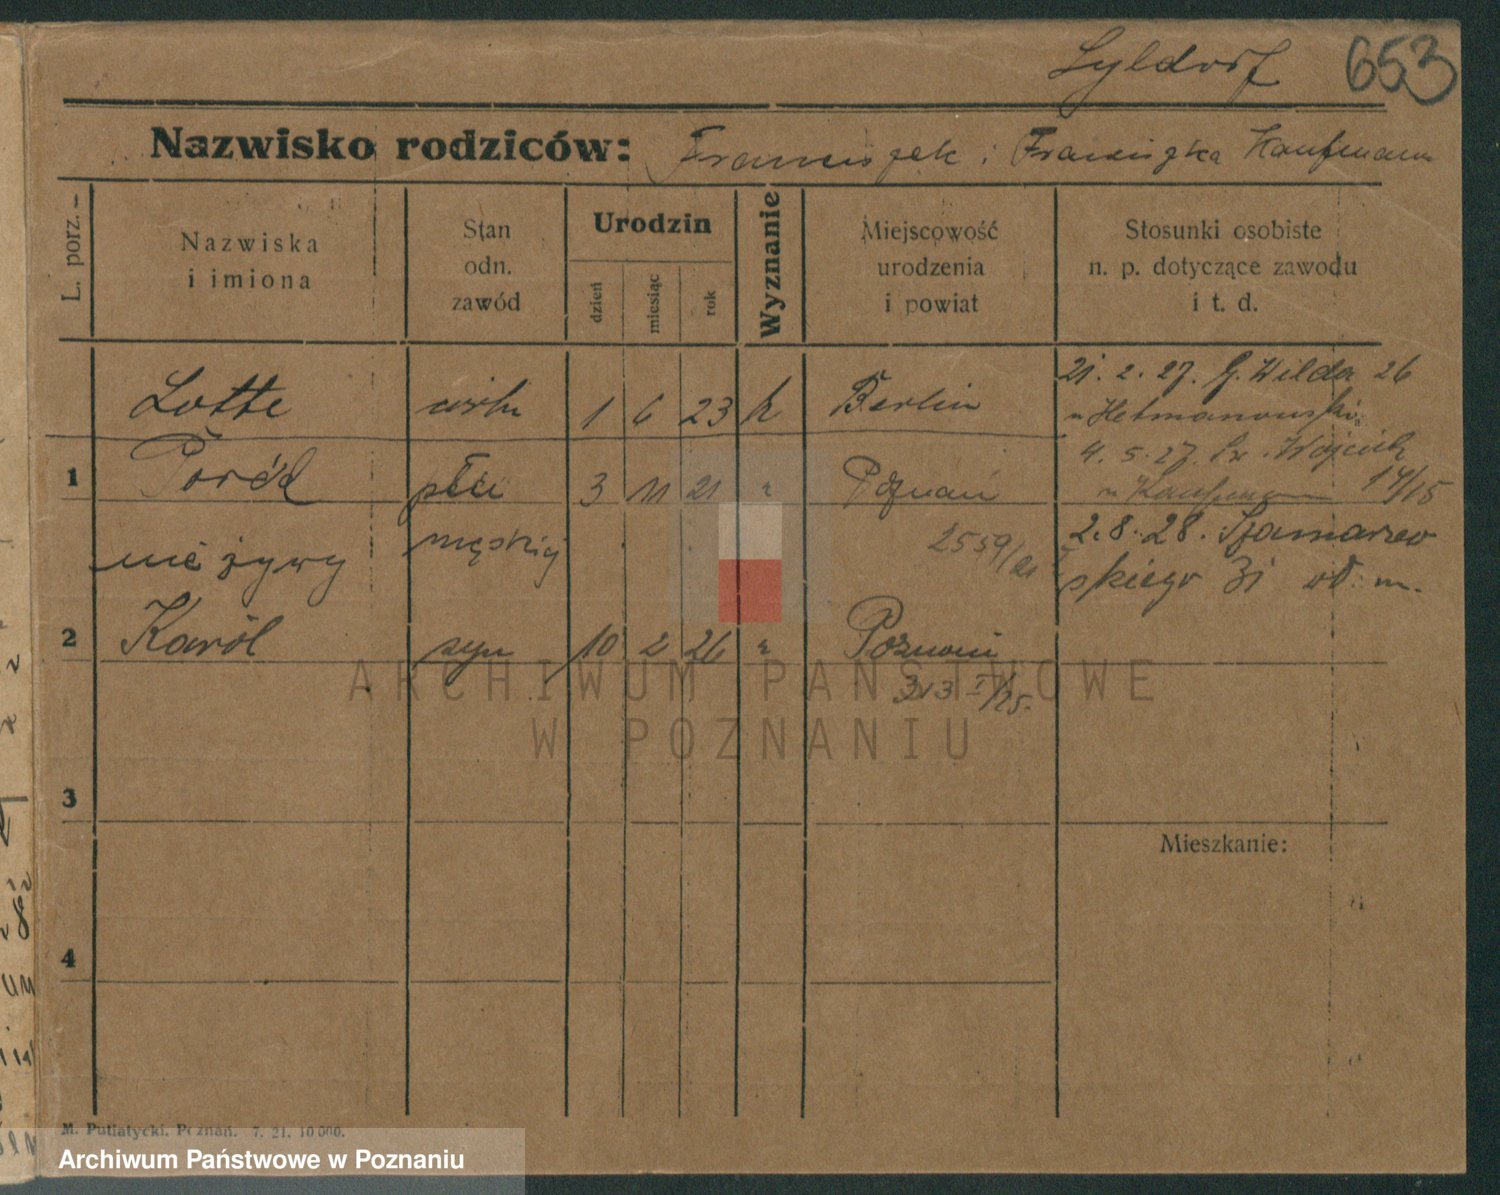 Syldorf 653
Nazwisko rodziców: Franciszek i Franciszka Kaufmann
L. porz.
Nazwiska
i imiona
Stan
odn.
zawód
Urodzin
dzień
miesiąc
rok
Wyznanie
Miejscowość
urodzenia
i powiat
Stosunki osobiste
n. p. dotyczące zawodu
i t. d.
Lotte 1 6 23 k Berlin
21. 2. 27. G. Wilda 26
Hetmanowski
1 Poród płci 3 11 21 Poznań
4. 5. 27. Św. Wojciech
m Kaufmann 17/15
nieżywy męskiej 2559/21
2. 8. 28. Szamarzew
skiego 31 od. m.
2 Karól syn 10 2 26 Poznań
313 I/25.
3
Mieszkanie:
4
M. Putiatycki. Poznań. 7. 21. 10 000.
ARCHIWUM PAŃSTWOWE
W POZNANIU
Archiwum Państwowe w Poznaniu